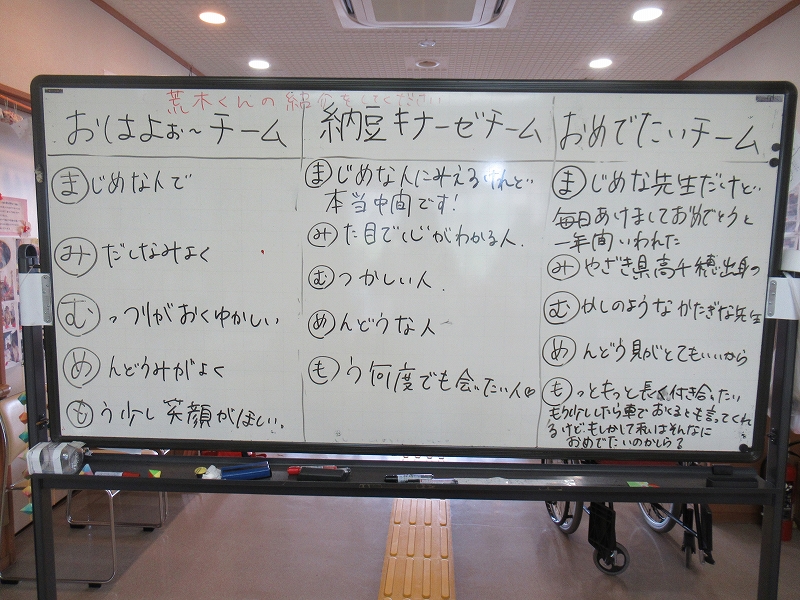 荒木くんの紹介をしてください
おはよぉ～チーム
まじめな人で
みだしなみよく
むっつりがおくゆかしい
めんどうみがよく
もう少し笑顔がほしい。
納豆キナーゼチーム
まじめな人にみえるけれど…
本当中間です!
みた目で"心"がわかる人.
むつかしい人.
めんどうな人
もう何度でも会いたい人♡
おめでたいチーム
まじめな先生だけど…
毎日あけましておめでとうと
一年間いわれた
みやざき県高千穂出身の
むかしのようなかたぎな先生
めんどう見がとてもいいから
もっともっと長く付き合いたい
もう少ししたら車でおくるとも言ってくれ
るけどもしかして私はそんなに
おめでたいのかしら?